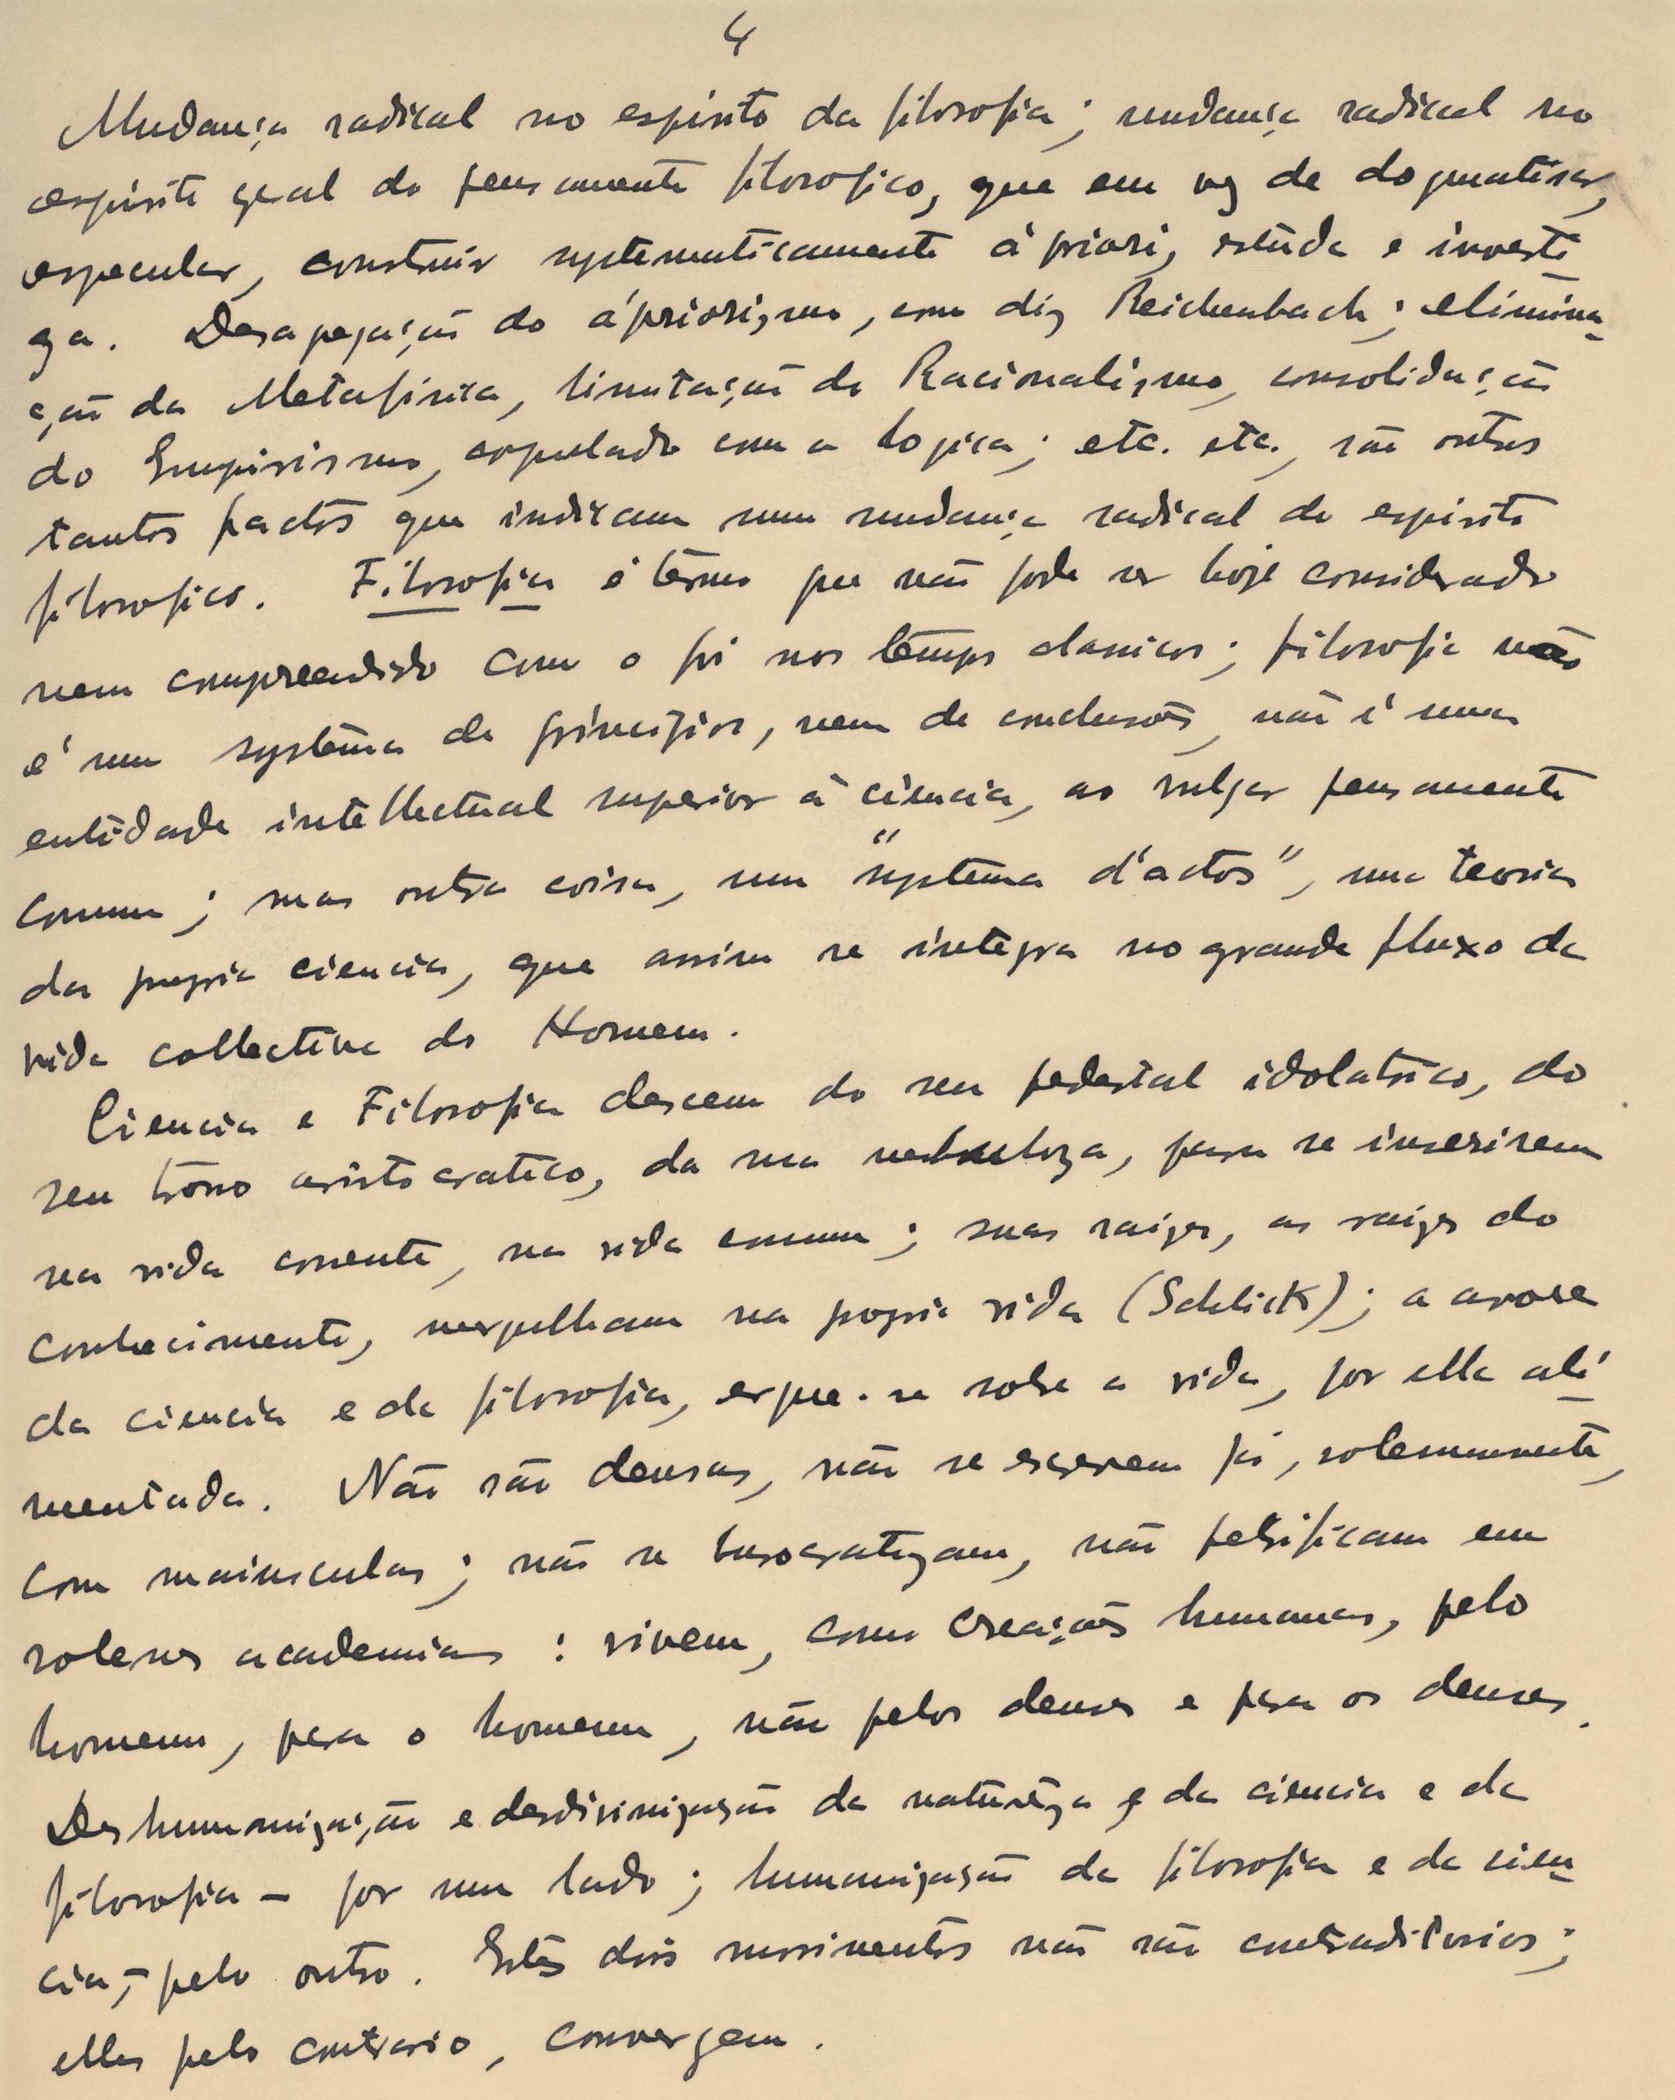 4
Mudança radical no espirito da filosofia; mudança radical no
espirito geral do pensamento filosofico, que em vez de dogmatisar,
especular, construir systematicamente á priori, estuda e investi
ga. Desapegação do ápriorismo, como diz Reichenbach; elimina
ção da Metafisica, limitação do Racionalismo, consolidação
do Empirismo, copulado com a Logica; etc. etc., são outros
tantos factos que indicam uma mudança radical do espirito
filosofico. Filosofia é têrmo que não pode ser hoje considerado
nem compreendido como o foi nos tempos classicos; filosofia não
é um systêma de principios, nem de conclusões, não é uma
entidade intellectual superior á ciencia, ao vulgar pensamento
comum; mas outra coisa, um "systema d'actos", uma teoria
da propria ciencia, que assim se integra no grande fluxo da
vida collectiva do Homem.
Ciencia e Filosofia descem do seu pedestal idolatrico, do
seu trono aristocratico, da sua nebuloza, para se inserirem
na vida corrente, na vida comum; suas raizes, as raizes do
conhecimento, mergulham na propria vida (Schlick); a arvore
da ciencia e da filosofia, ergue-se sobre a vida, por ella ali
mentada. Não são deusas, não se escrevem já, solemnemente,
com maiusculas; não se burocratizam, não petrificam em
solenes academias: vivem, como creações humanas, pelo
homem, para o homem, não pelos deuses e para os deuses.
Deshumanização e desdivinização da naturêza e da ciencia e da
filosofia - por um lado; humanização da filosofia e da cien
cia, - pelo outro. Estes dois movimentos não são contraditorios;
elles pelo contrario, convergem.